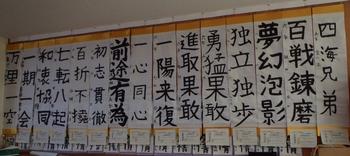 四海兄弟
百戦錬磨
夢幻泡影
独立独歩
勇猛果敢
進取果敢
一陽来復
一心同心
前途有為
初志貫徹
百折不撓
七転八起
和衷協同
一期一会
万里空